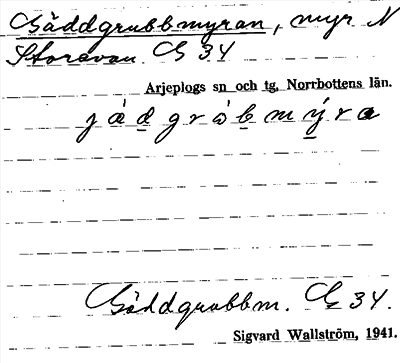 Gäddgrubbmyran, myr N
Storavan G 34
Arjeplogs sn och tg, Norrbottens län.
Gäddgrubbm. G 34.
Sigvard Wallström, 1941.